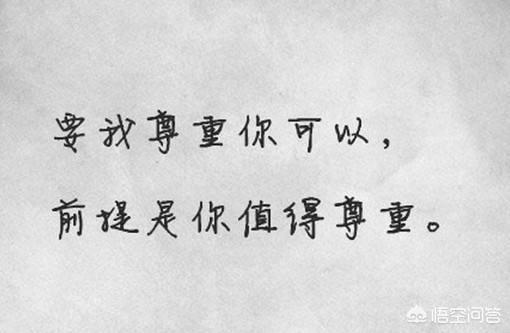 要我尊重你可以，
前提是你值得尊重。
悟空问答